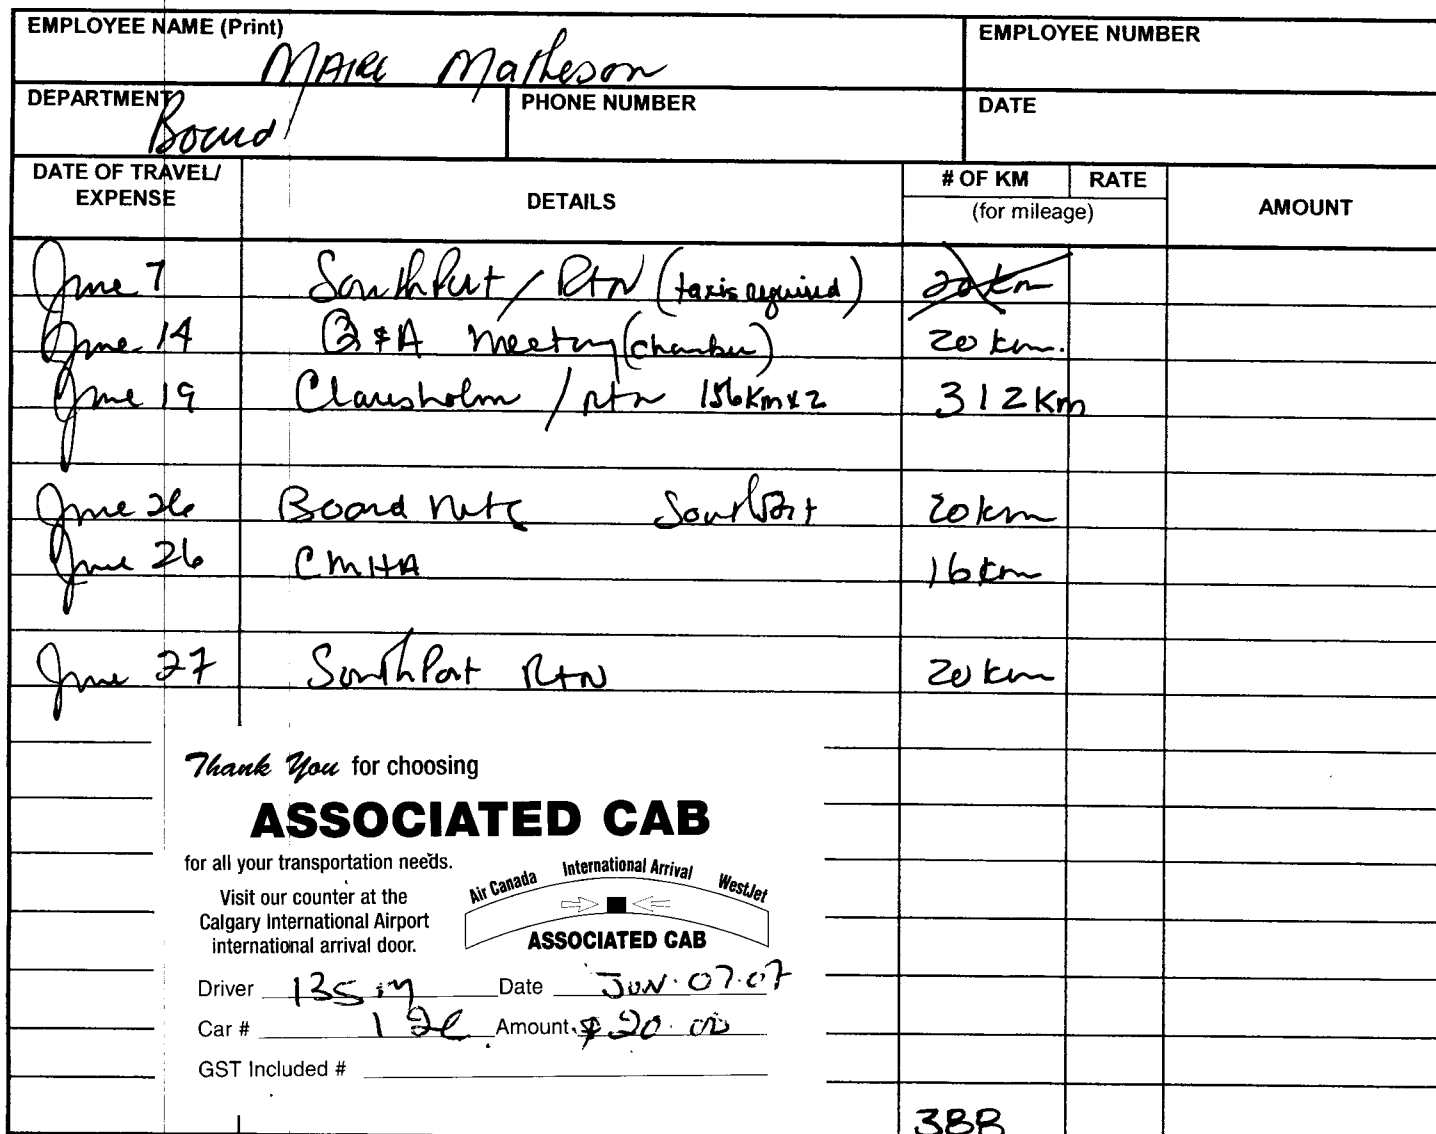 EMPLOYEE NAME (Print) EMPLOYEE NUMBER
Matheson
DEPARTMENT PHONE NUMBER DATE
Board
DATE OF TRAVEL/ EXPENSE DETAILS # OF KM RATE (for mileage) AMOUNT
June 7 SouthPort / RTN (taxis required) 20 km
June 14 Q & A Meeting (chamber) 20 km.
June 19 Claresholm / rtn 156km x 2 312 Km
June 26 Board SouthPort 20 km
June 26 CMHA 16 km
June 27 SouthPort RTN 20 km
Thank You for choosing
ASSOCIATED CAB
for all your transportation needs.
Visit our counter at the
Calgary International Airport
international arrival door.
Air Canada International Arrival WestJet
ASSOCIATED CAB
Driver Date JUN. 07.07
Car # Amount $20.00
GST Included #
388